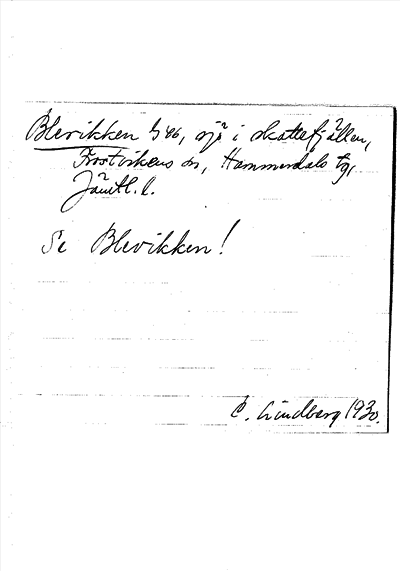 Blerikken b 46, sjö i skattefjällen,
Frostvikens sn, Hammerdals tg,
Jämtl. l.
Se Blevikken!
E. Lindberg 1930.